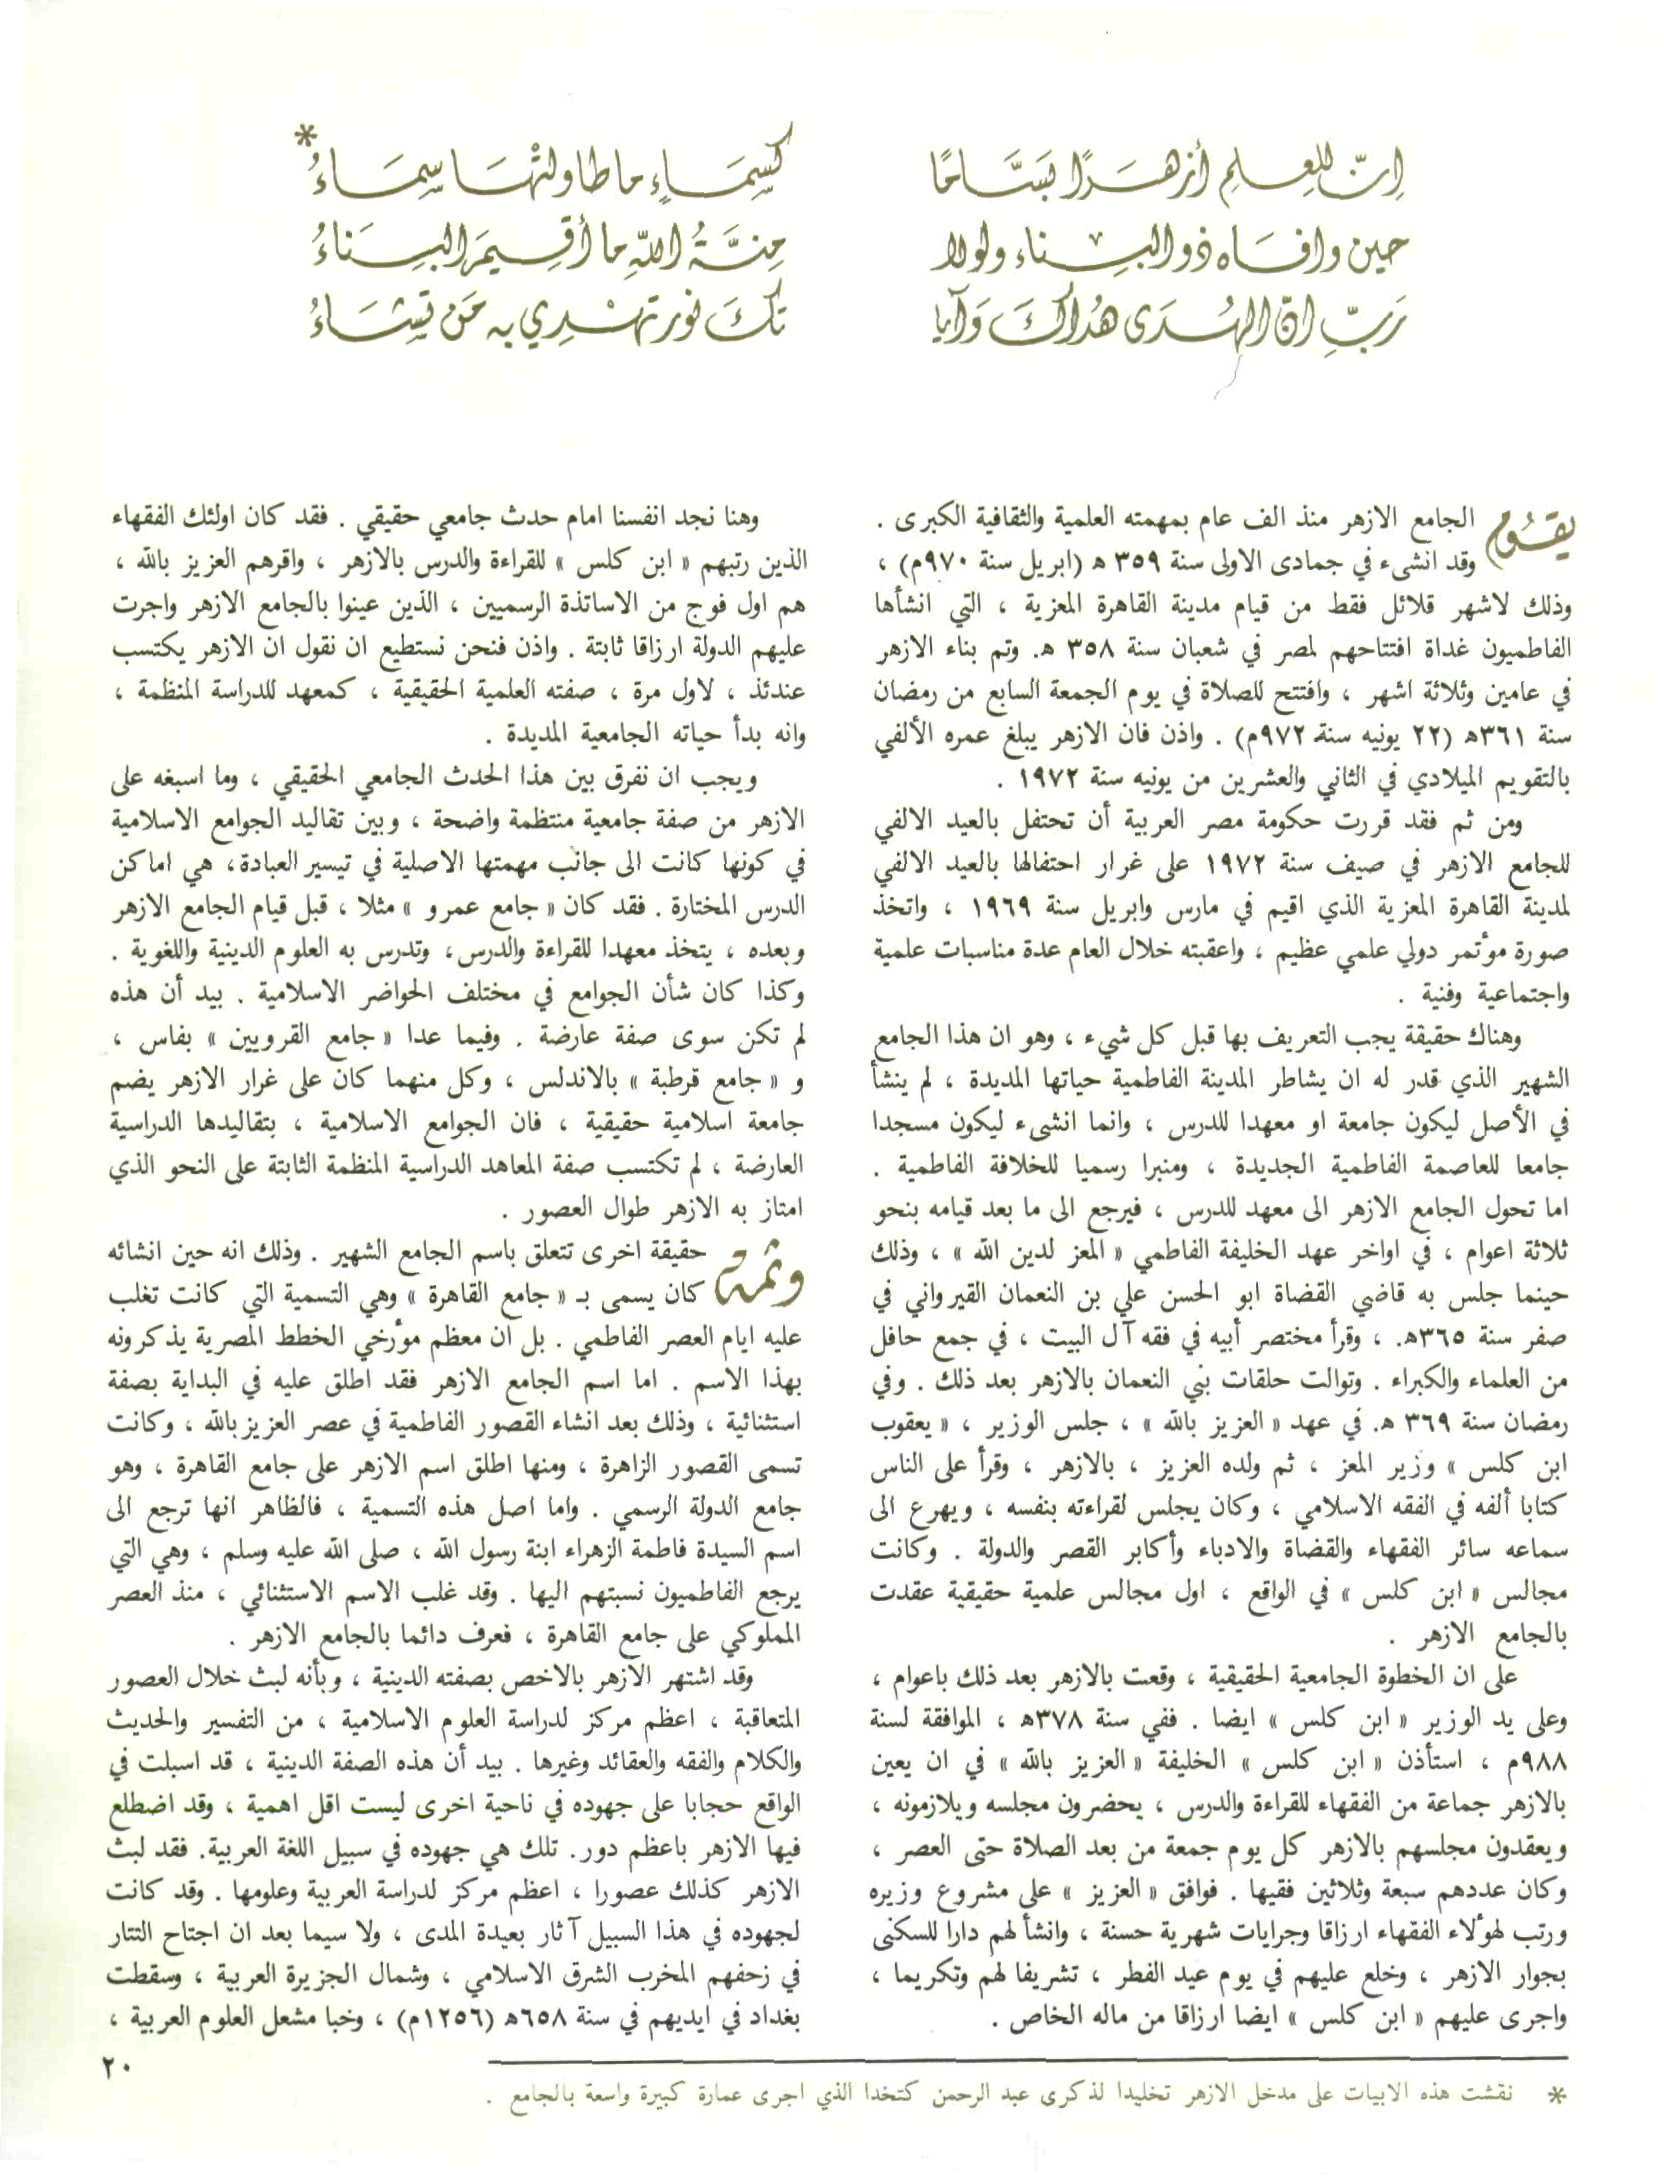 إنّ للعِلمِ أزهَرًا يَتَسَامَا
كَسَمَاءٍ ما طاولتْهَا سِمَاءُ *
حين وافَاه ذو البِناء ولولا
مِنَّةُ اللهِ ما أُقيمَ البِنَاءُ
رَبِّ إنّ الهُدَى هُداكَ وَآيا
تُكَ نور تهْدِي به مَن تَشَاءُ
يقُوم الجامع الازهر منذ الف عام بمهمته العلمية والثقافية الكبرى .
وقد انشىء في جمادى الاولى سنة ٣٥٩ ه (ابريل سنة ٩٧٠م) ،
وذلك لاشهر قلائل فقط من قيام مدينة القاهرة المعزية ، التي انشأها
الفاطميون غداة افتتاحهم لمصر في شعبان سنة ٣٥٨ ه. وتم بناء الازهر
في عامين وثلاثة اشهر ، وافتتح للصلاة في يوم الجمعة السابع من رمضان
سنة ٣٦١ه (٢٢ يونيه سنة ٩٧٢م) . واذن فان الازهر يبلغ عمره الألفي
بالتقويم الميلادي في الثاني والعشرين من يونيه سنة ١٩٧٢ .
ومن ثم فقد قررت حكومة مصر العربية أن تحتفل بالعيد الالفي
للجامع الازهر في صيف سنة ١٩٧٢ على غرار احتفالها بالعيد الالفي
لمدينة القاهرة المعزية الذي اقيم في مارس وابريل سنة ١٩٦٩ ، واتخذ
صورة مؤتمر دولي علمي عظيم ، واعقبته خلال العام عدة مناسبات علمية
واجتماعية وفنية .
وهناك حقيقة يجب التعريف بها قبل كل شيء ، وهو ان هذا الجامع
الشهير الذي قدر له ان يشاطر المدينة الفاطمية حياتها المديدة ، لم ينشأ
في الأصل ليكون جامعة او معهدا للدرس ، وانما انشىء ليكون مسجدا
جامعا للعاصمة الفاطمية الجديدة ، ومنبرا رسميا للخلافة الفاطمية .
اما تحول الجامع الازهر الى معهد للدرس ، فيرجع الى ما بعد قيامه بنحو
ثلاثة اعوام ، في اواخر عهد الخليفة الفاطمي « المعز لدين الله » ، وذلك
حينما جلس به قاضي القضاة ابو الحسن علي بن النعمان القيرواني في
صفر سنة ٣٦٥ه. ، وقرأ مختصر أبيه في فقه آل البيت ، في جمع حافل
من العلماء والكبراء . وتوالت حلقات بني النعمان بالازهر بعد ذلك . وفي
رمضان سنة ٣٦٩ ه. في عهد « العزيز بالله » ، جلس الوزير ، « يعقوب
ابن كلس » وزير المعز ، ثم ولده العزيز ، بالازهر ، وقرأ على الناس
كتابا ألفه في الفقه الاسلامي ، وكان يجلس لقراءته بنفسه ، ويهرع الى
سماعه سائر الفقهاء والقضاة والادباء وأكابر القصر والدولة . وكانت
مجالس « ابن كلس » في الواقع ، اول مجالس علمية حقيقية عقدت
بالجامع الازهر .
على ان الخطوة الجامعية الحقيقية ، وقعت بالازهر بعد ذلك باعوام ،
وعلى يد الوزير « ابن كلس » ايضا . ففي سنة ٣٧٨ه ، الموافقة لسنة
٩٨٨م ، استأذن « ابن كلس » الخليفة « العزيز بالله » في ان يعين
بالازهر جماعة من الفقهاء للقراءة والدرس ، يحضرون مجلسه ويلازمونه ،
ويعقدون مجلسهم بالازهر كل يوم جمعة من بعد الصلاة حتى العصر ،
وكان عددهم سبعة وثلاثين فقيها . فوافق « العزيز » على مشروع وزيره
ورتب لهؤلاء الفقهاء ارزاقا وجرايات شهرية حسنة ، وانشأ لهم دارا للسكنى
بجوار الازهر ، وخلع عليهم في يوم عيد الفطر ، تشريفا لهم وتكريما ،
واجرى عليهم « ابن كلس » ايضا ارزاقا من ماله الخاص .
وهنا نجد انفسنا امام حدث جامعي حقيقي . فقد كان اولئك الفقهاء
الذين رتبهم « ابن كلس » للقراءة والدرس بالازهر ، واقرهم العزيز بالله ،
هم اول فوج من الاساتذة الرسميين ، الذين عينوا بالجامع الازهر واجرت
عليهم الدولة ارزاقا ثابتة . واذن فنحن نستطيع ان نقول ان الازهر يكتسب
عندئذ ، لاول مرة ، صفته العلمية الحقيقية ، كمعهد للدراسة المنظمة ،
وانه بدأ حياته الجامعية المديدة .
ويجب ان نفرق بين هذا الحدث الجامعي الحقيقي ، وما اسبغه على
الازهر من صفة جامعية منتظمة واضحة ، وبين تقاليد الجوامع الاسلامية
في كونها كانت الى جانب مهمتها الاصلية في تيسير العبادة، هي اماكن
الدرس المختارة . فقد كان « جامع عمرو » مثلا ، قبل قيام الجامع الازهر
وبعده ، يتخذ معهدا للقراءة والدرس، وتدرس به العلوم الدينية واللغوية .
وكذا كان شأن الجوامع في مختلف الحواضر الاسلامية . بيد أن هذه
لم تكن سوى صفة عارضة . وفيما عدا « جامع القرويين » بفاس ،
و « جامع قرطبة » بالاندلس ، وكل منهما كان على غرار الازهر يضم
جامعة اسلامية حقيقية ، فان الجوامع الاسلامية ، بتقاليدها الدراسية
العارضة ، لم تكتسب صفة المعاهد الدراسية المنظمة الثابتة على النحو الذي
امتاز به الازهر طوال العصور .
وثمة حقيقة اخرى تتعلق باسم الجامع الشهير . وذلك انه حين انشائه
كان يسمى بـ « جامع القاهرة » وهي التسمية التي كانت تغلب
عليه ايام العصر الفاطمي . بل ان معظم مؤرخي الخطط المصرية يذكرونه
بهذا الاسم . اما اسم الجامع الازهر فقد اطلق عليه في البداية بصفة
استثنائية ، وذلك بعد انشاء القصور الفاطمية في عصر العزيز بالله ، وكانت
تسمى القصور الزاهرة ، ومنها اطلق اسم الازهر على جامع القاهرة ، وهو
جامع الدولة الرسمي . واما اصل هذه التسمية ، فالظاهر انها ترجع الى
اسم السيدة فاطمة الزهراء ابنة رسول الله ، صلى الله عليه وسلم ، وهي التي
يرجع الفاطميون نسبتهم اليها . وقد غلب الاسم الاستثنائي ، منذ العصر
المملوكي على جامع القاهرة ، فعرف دائما بالجامع الازهر .
وقد اشتهر الازهر بالاخص بصفته الدينية ، وبأنه لبث خلال العصور
المتعاقبة ، اعظم مركز لدراسة العلوم الاسلامية ، من التفسير والحديث
والكلام والفقه والعقائد وغيرها . بيد أن هذه الصفة الدينية ، قد اسبلت في
الواقع حجابا على جهوده في ناحية اخرى ليست اقل اهمية ، وقد اضطلع
فيها الازهر باعظم دور. تلك هي جهوده في سبيل اللغة العربية. فقد لبث
الازهر كذلك عصورا ، اعظم مركز لدراسة العربية وعلومها . وقد كانت
لجهوده في هذا السبيل آثار بعيدة المدى ، ولا سيما بعد ان اجتاح التتار
في زحفهم المخرب الشرق الاسلامي ، وشمال الجزيرة العربية ، وسقطت
بغداد في ايديهم في سنة ٦٥٨ه (١٢٥٦م) ، وخبا مشعل العلوم العربية ،
* نقشت هذه الابيات على مدخل الازهر تخليدا لذكرى عبد الرحمن كتخدا الذي اجرى عمارة كبيرة واسعة بالجامع .
٢٠